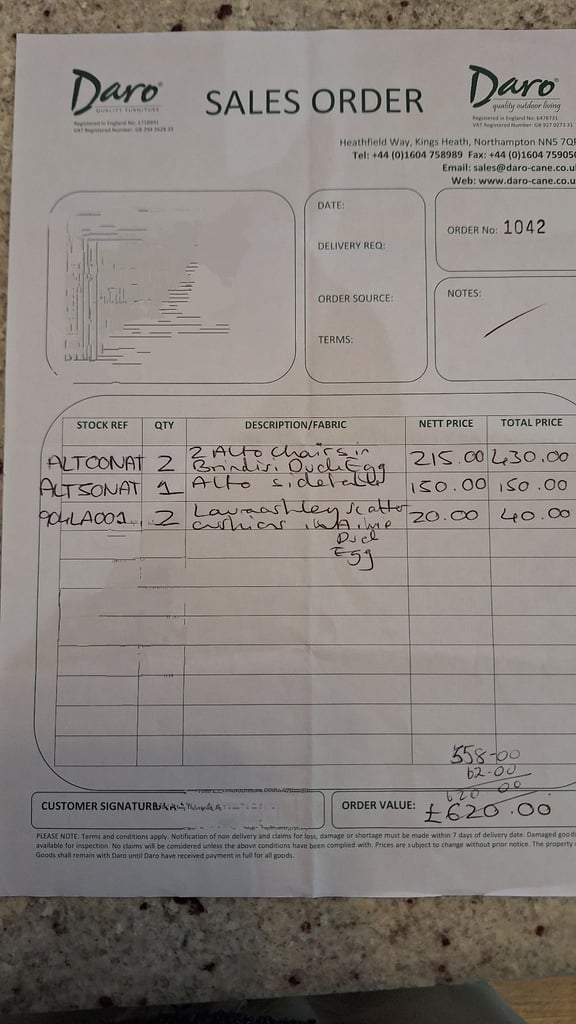 Daro
QUALITY FURNITURE
Registered in England No: 1718891
VAT Registered Number: GB 294 2629 33
SALES ORDER
Daro
quality outdoor living
Registered in England No: 6478731
VAT Registered Number: GB 927 0273 31
Heathfield Way, Kings Heath, Northampton NN5 7QP
Tel: +44 (0)1604 758989 Fax: +44 (0)1604 75905
Email: sales@daro-cane.co.u
Web: www.daro-cane.co.u
DATE:
DELIVERY REQ:
ORDER SOURCE:
TERMS:
ORDER No: 1042
NOTES:
STOCK REF QTY DESCRIPTION/FABRIC NETT PRICE TOTAL PRICE
ALTCONAT 2 2 Alto Chairs in 215.00 430.00
Brindisi Duck Egg
ALTSONAT 1 Alto sidetable 150.00 150.00
904LA001 2 Laura ashley scatter 20.00 40.00
cushions in
Duck
Egg
558-00
62-00
620 00
CUSTOMER SIGNATURE
ORDER VALUE: £620.00
PLEASE NOTE: Terms and conditions apply. Notification of non delivery and claims for loss, damage or shortage must be made within 7 days of delivery date. Damaged goods
available for inspection. No claims will be considered unless the above conditions have been complied with. Prices are subject to change without prior notice. The property
Goods shall remain with Daro until Daro have received payment in full for all goods.